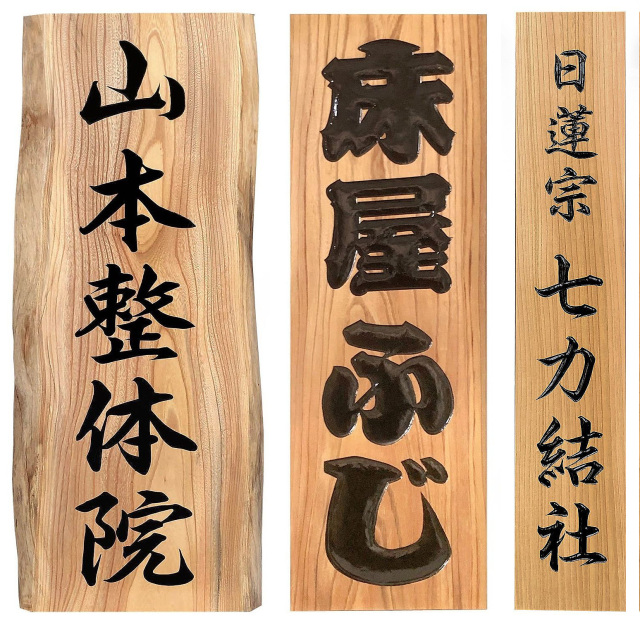 山本整体院
床屋ふじ
日蓮宗 七力結社